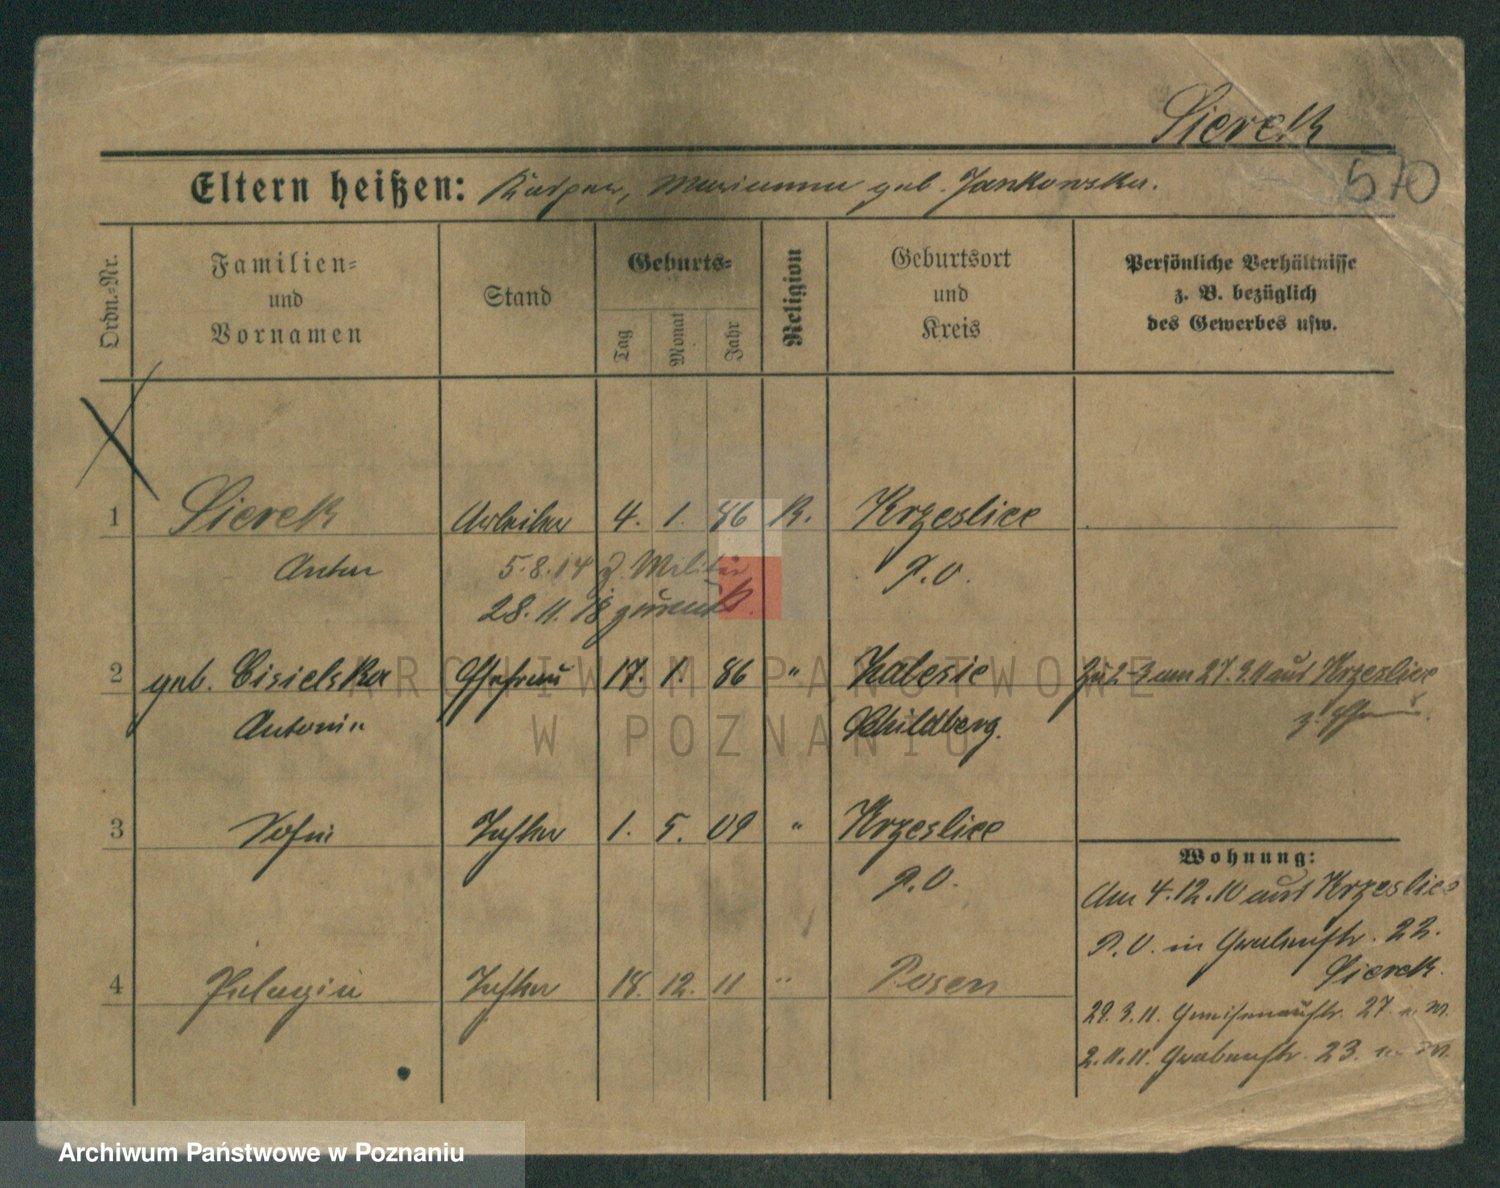 Sierek
570
Eltern heißen: Kasper, Marianna geb. Jankowska.
Ordn.=Nr.
Familien=
und
Vornamen
Stand
Geburts=
Tag
Monat
Jahr
Religion
Geburtsort
und
Kreis
Persönliche Verhältnisse
z. B. bezüglich
des Gewerbes usw.
1 Sierek Arbeiter 4. 1. 86 K. Krzeslice
Anton 5.8.14 z. Militär P.O.
28.11.18 zurück.
2 geb. Cisielska Ehefrau 17. 1. 86 " Kalesie Zu 2-3 am 27.3.11 aus Krzeslice
Antonie Schildberg. z. Ehem.
3 Sofie Tochter 1. 5. 09 " Krzeslice
P.O.
Wohnung:
Am 4.12.10 aus Krzeslice
P.O. in Grabenstr. 22.
Sierek.
4 Pelagia Tochter 18. 12. 11 " Posen
29.3.11. Gneisenaustr. 27. n. W.
2.11.11. Grabenstr. 23.
ARCHIWUM PAŃSTWOWE
W POZNANIU
Archiwum Państwowe w Poznaniu